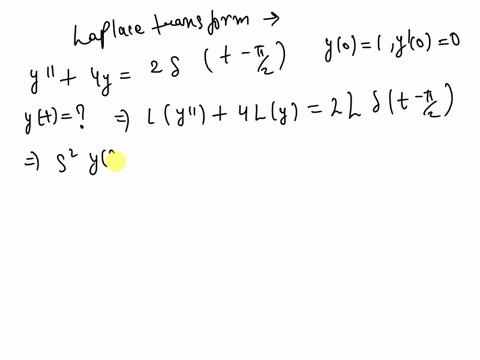 Laplace transform →
y'' + 4y = 2δ (t - π/2) y(0) = 1, y'(0) = 0
y(t) = ? ⇒ L(y'') + 4L(y) = 2L δ(t - π/2)
⇒ S² y(